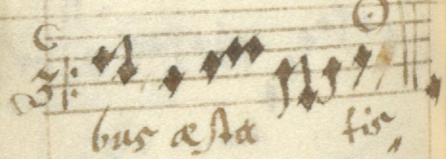 bus æsta tis